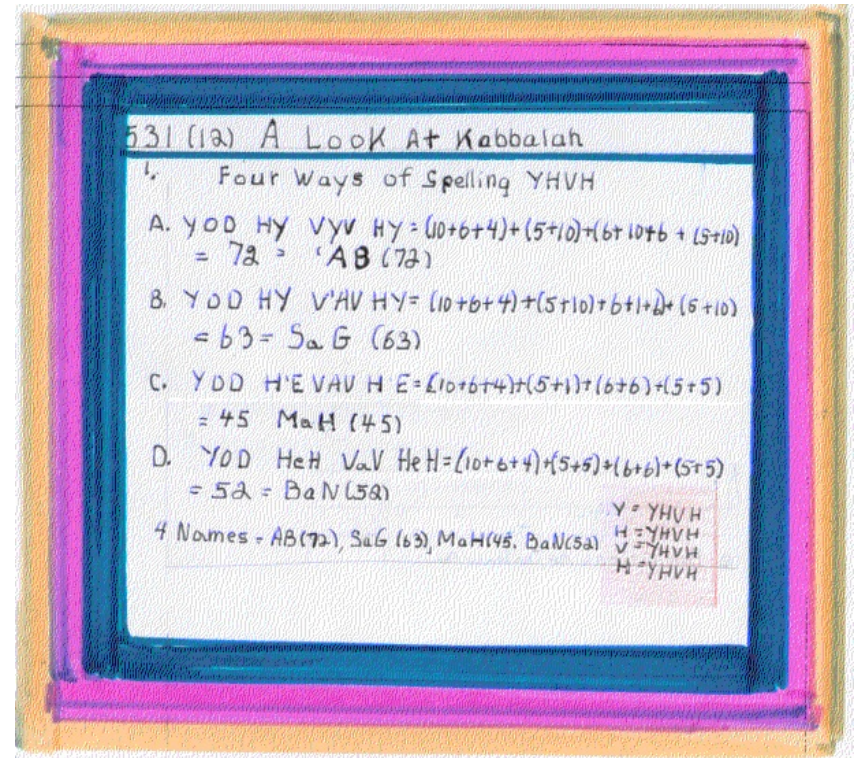 531 (12) A Look At Kabbalah
1. Four Ways of Spelling YHVH
A. YOD HY VYV HY = (10+6+4)+(5+10)+(6+10+6 + (5+10)
= 72 = 'AB (72)
B. YOD HY V'AV HY = (10+6+4)+(5+10)+6+1+6)+(5+10)
= 63 = SaG (63)
C. YOD H'E VAV H E = (10+6+4)+(5+1)+(6+6)+(5+5)
= 45 MaH (45)
D. YOD HeH VaV HeH = (10+6+4)+(5+5)+(6+6)+(5+5)
= 52 = BaN (52)
4 Names = AB(72), SaG (63), MaH(45. BaN(52)
Y = YHVH
H = YHVH
V = YHVH
H = YHVH